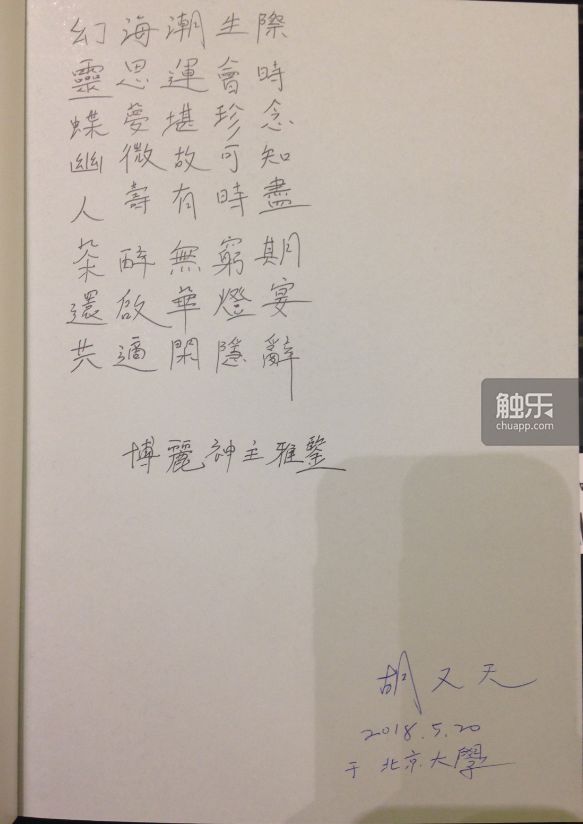 幻海潮生際
靈思運會時
蝶夢堪珍念
幽微故可知
人壽有時盡
朵醉無窮期
還啟華燈宴
共適閑隱辭
博麗神主雅鑒
胡又天
2018.5.20
于北京大學
触乐
chuapp.com